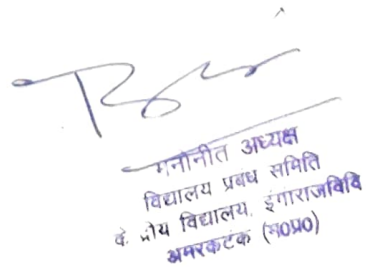 मनोनीत अध्यक्ष
विद्यालय प्रबंध समिति
के ीय विद्यालय, इंगाराजविवि
अमरकंटक (म०प्र०)